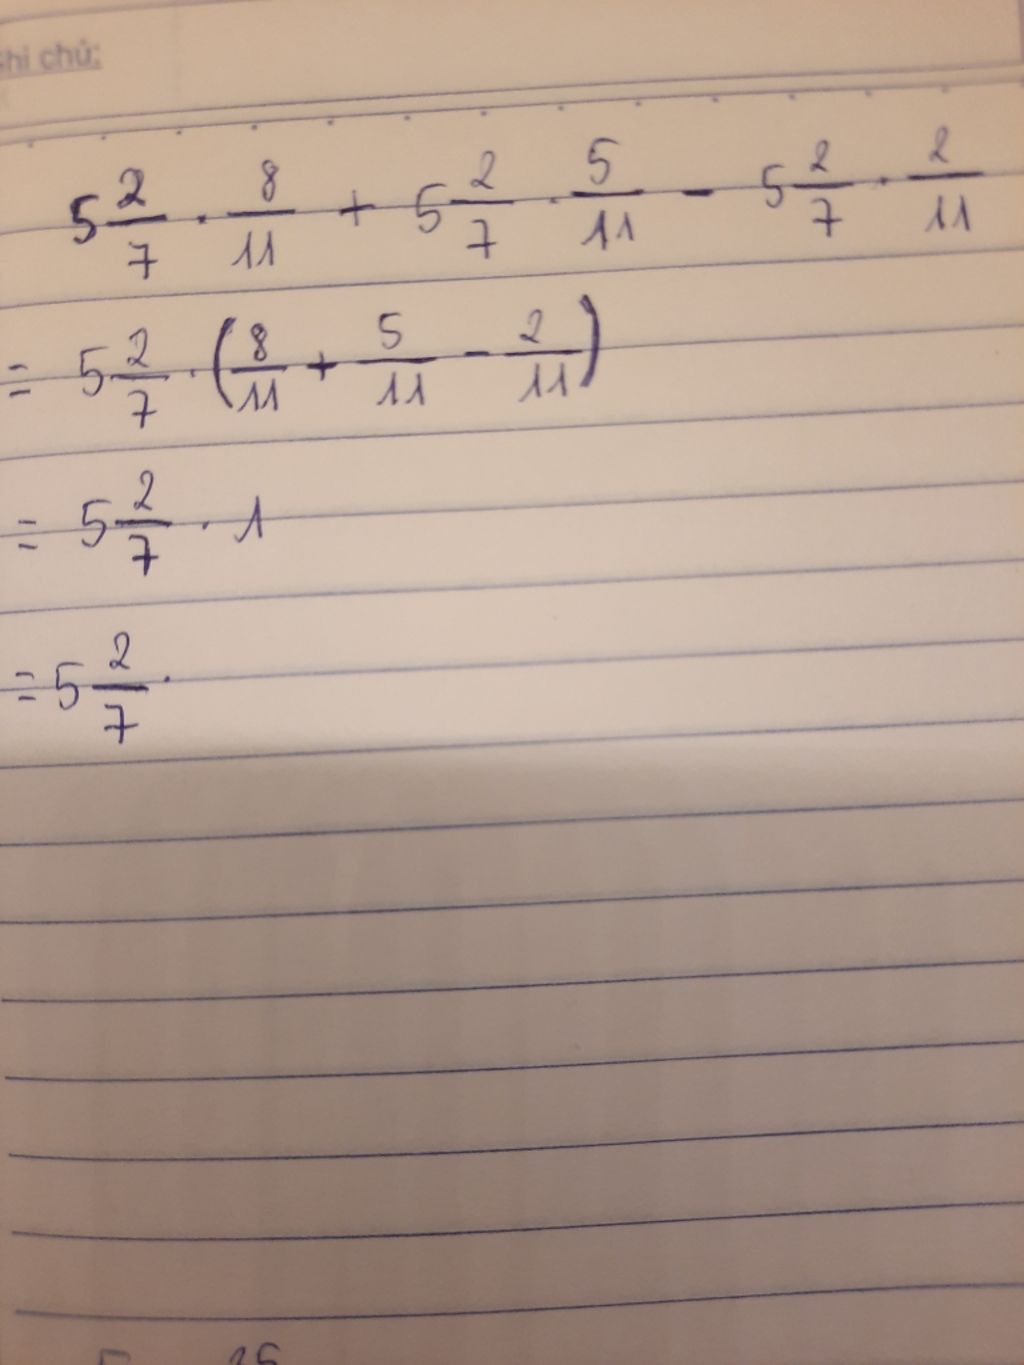 Ghi chú:
5 2/7 . 8/11 + 5 2/7 . 5/11 - 5 2/7 . 2/11
= 5 2/7 . (8/11 + 5/11 - 2/11)
= 5 2/7 . 1
= 5 2/7 .